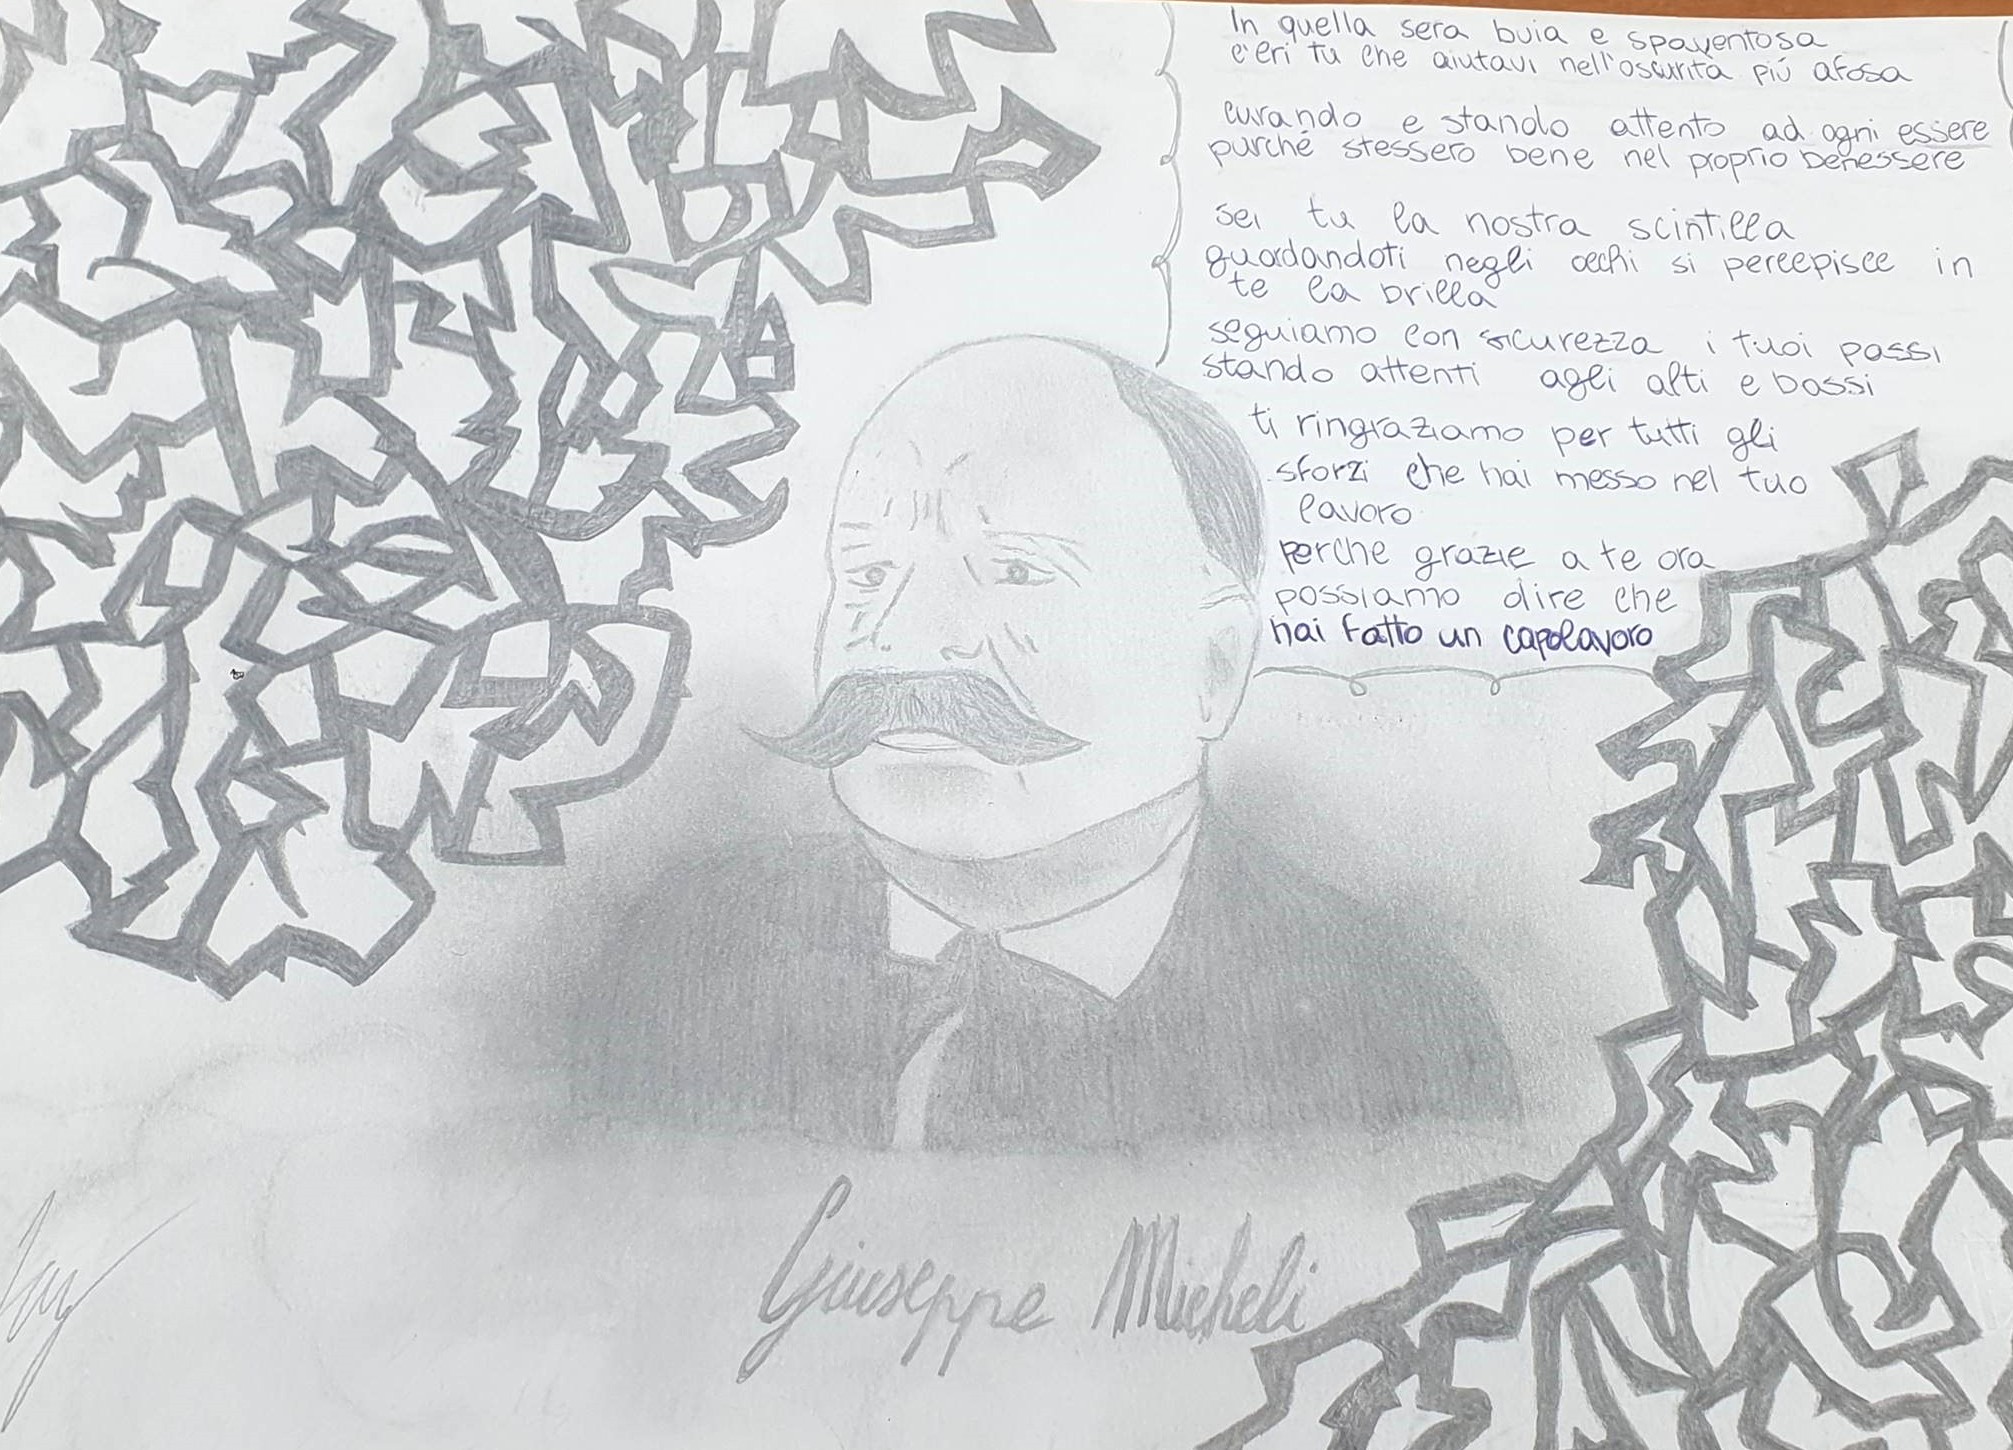 In quella sera buia e spaventosa
c'eri tu che aiutavi nell'oscurità più afosa
curando e stando attento ad ogni essere
purché stessero bene nel proprio benessere
sei tu la nostra scintilla
guardandoti negli occhi si percepisce in
te la brilla
seguiamo con sicurezza i tuoi passi
stando attenti agli alti e bassi
ti ringraziamo per tutti gli
sforzi che hai messo nel tuo
lavoro
perche grazie a te ora
possiamo dire che
hai fatto un capolavoro
Giuseppe Micheli